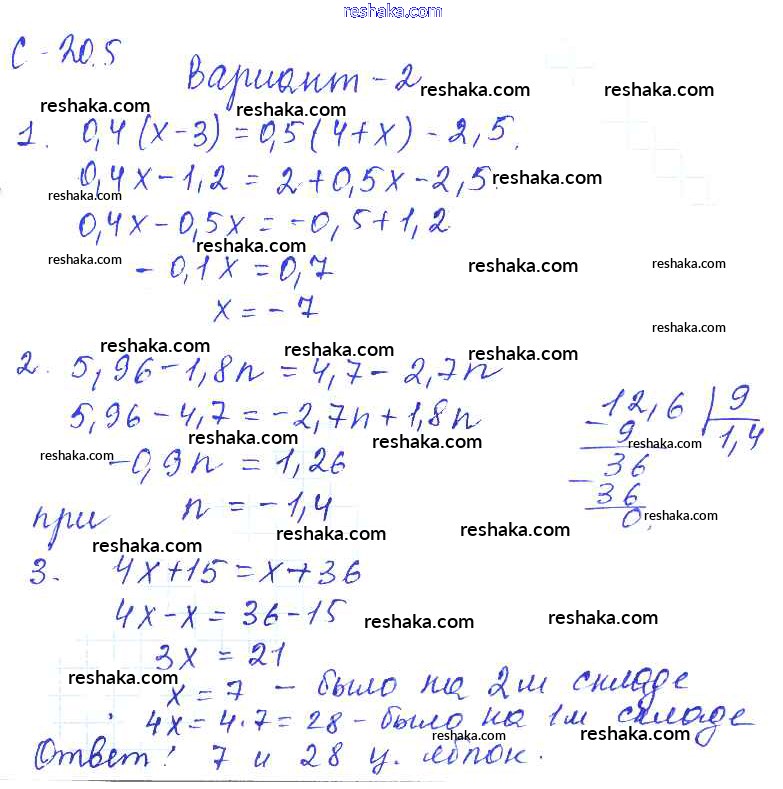 reshaka.com
С-20.5
Вариант-2
reshaka.com reshaka.com reshaka.com reshaka.com
1. 0,4(x-3)=0,5(4+x)-2,5.
0,4x-1,2=2+0,5x-2,5. reshaka.com
reshaka.com
0,4x-0,5x=-0,5+1,2
reshaka.com reshaka.com reshaka.com reshaka.com
-0,1x=0,7
x=-7 reshaka.com
reshaka.com reshaka.com reshaka.com
2. 5,96-1,8n=4,7-2,7n
5,96-4,7=-2,7n+1,8n
reshaka.com reshaka.com reshaka.com
-0,9n=1,26
reshaka.com
при n=-1,4
12,6 | 9
- 9 1,4
36
- 36
0.
reshaka.com reshaka.com reshaka.com
3. 4x+15=x+36
4x-x=36-15 reshaka.com reshaka.com
3x=21
reshaka.com reshaka.com
x=7 - было на 2м складе
4x=4·7=28-было на 1м складе
reshaka.com reshaka.com reshaka.com
Ответ: 7 и 28 ц. яблок.